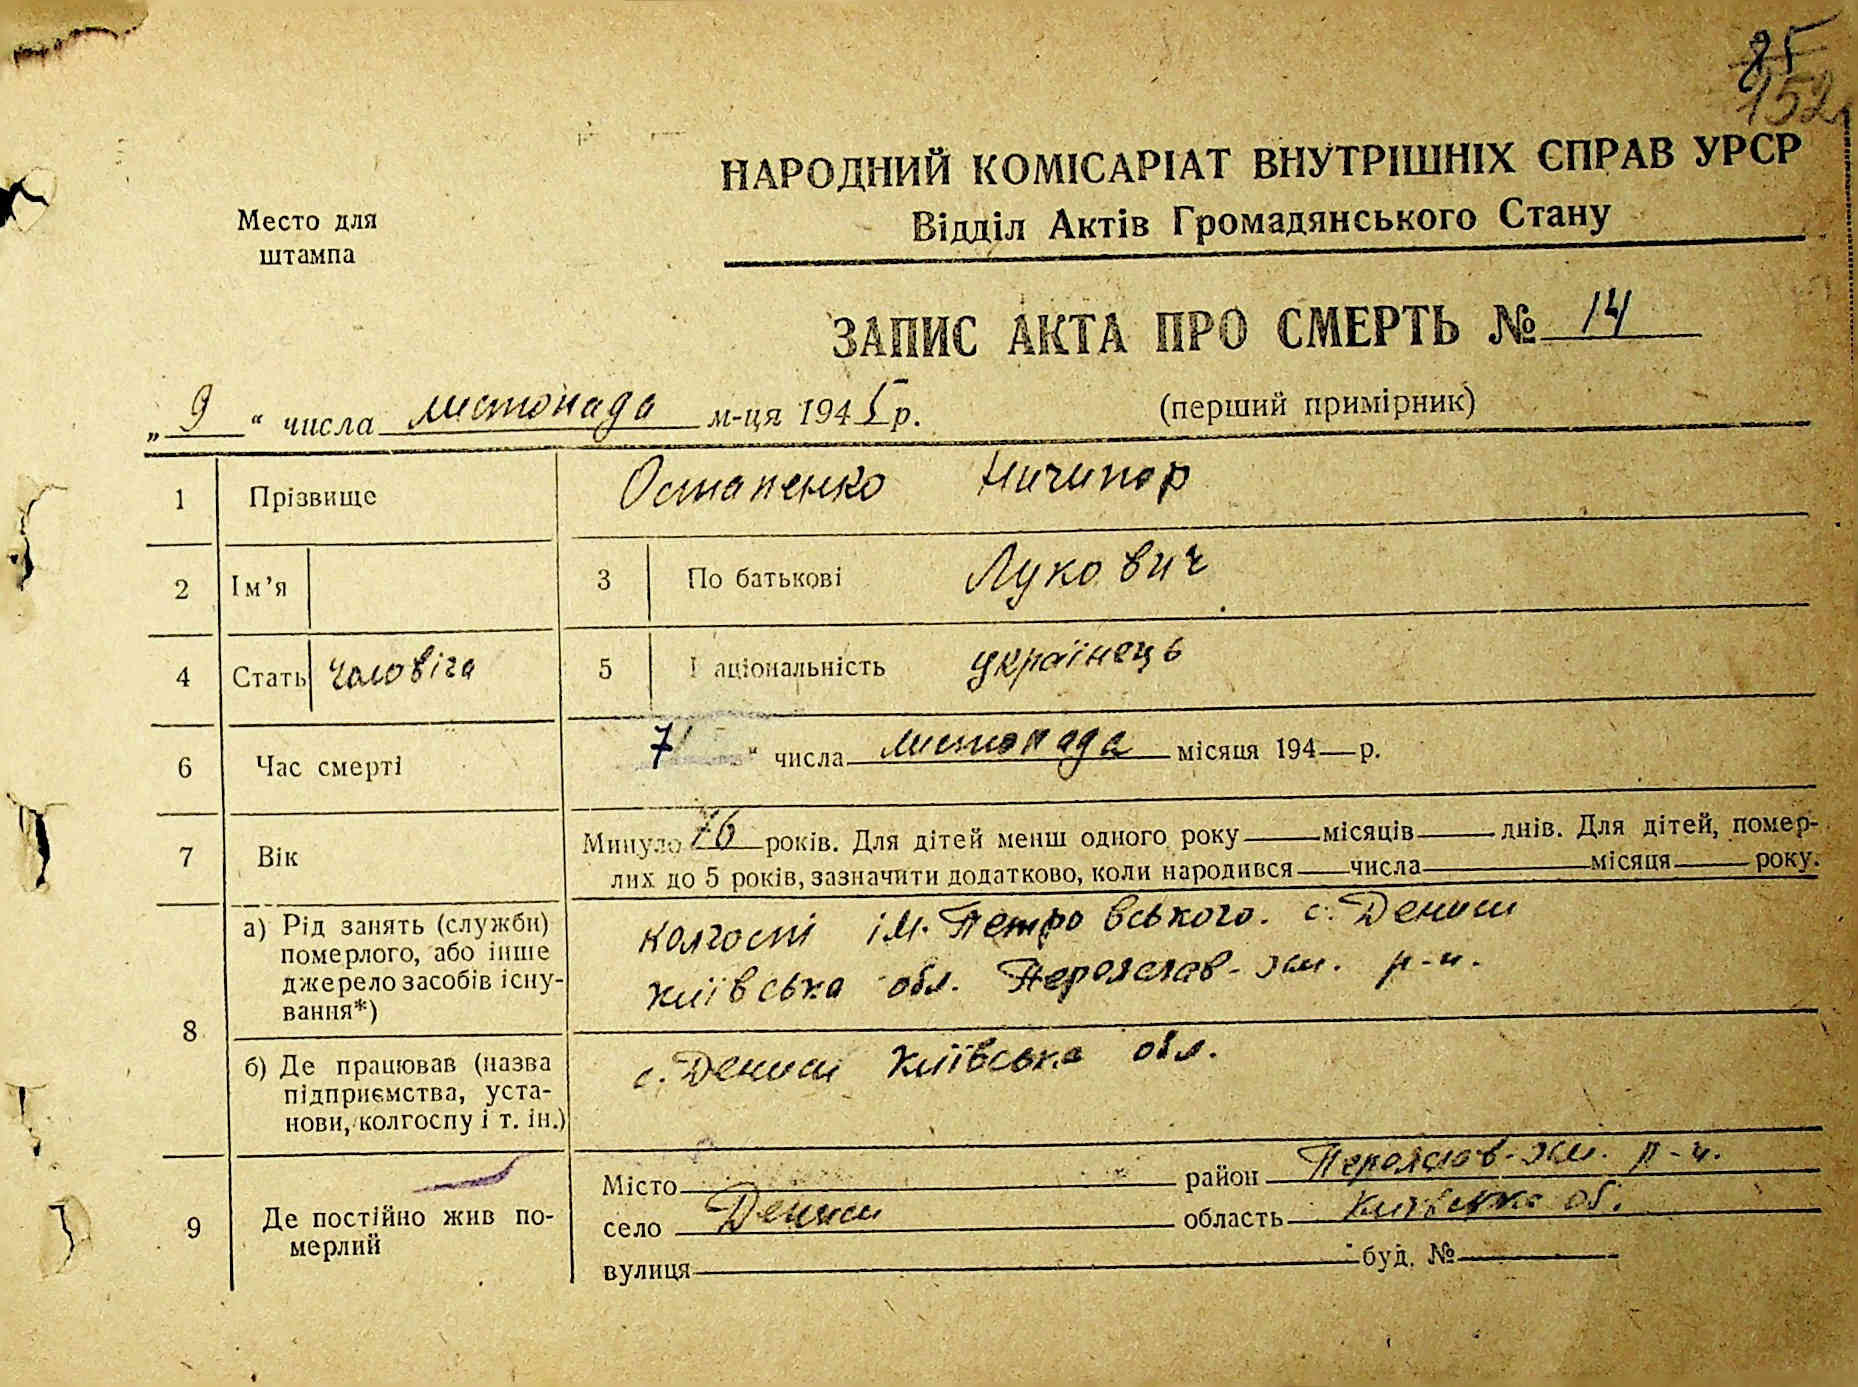 85
152
НАРОДНИЙ КОМІСАРІАТ ВНУТРІШНІХ СПРАВ УРСР
Відділ Актів Громадянського Стану
Место для
штампа
ЗАПИС АКТА ПРО СМЕРТЬ № 14
„ 9 “ числа листопада м-ця 1945 р.
(перший примірник)
1 Прізвище Остапенко Ничипор
2 Ім’я 3 По батькові Лукович
4 Стать чоловіча 5 Національність українець
6 Час смерті 7 “ числа листопада місяця 194—р.
7 Вік Минуло 76 років. Для дітей менш одного року — місяців — днів. Для дітей, помер-
лих до 5 років, зазначити додатково, коли народився — числа — місяця — року.
8 а) Рід занять (служби)
померлого, або інше
джерело засобів існу-
вання*)
колгоспі ім. Петровського. с. Дениси
Київська обл. Переяслав-хм. р-н.
б) Де працював (назва
підприємства, уста-
нови, колгоспу і т. ін.)
с. Дениси Київська обл.
9 Де постійно жив по-
мерлий
Місто — район Переяслав-хм. р-н.
село Дениси область Київська об.
вулиця — буд. № —